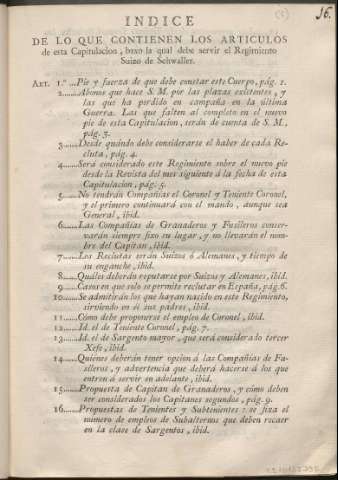 (5) 16.
INDICE
DE LO QUE CONTIENEN LOS ARTICULOS
de esta Capitulacion, baxo la qual debe servir el Regimiento
Suizo de Schwaller.
ART. 1.º...Pie y fuerza de que debe constar este Cuerpo, pág. 1.
2.......Abonos que hace S. M. por las plazas existentes, y
las que ha perdido en campaña en la última
Guerra. Las que falten al completo en el nuevo
pie de esta Capitulacion, serán de cuenta de S. M,
pág. 3.
3.......Desde quándo debe considerarse el haber de cada Re-
cluta, pág. 4.
4.......Será considerado este Regimiento sobre el nuevo pie
desde la Revista del mes siguiente á la fecha de esta
Capitulacion, pág. 5.
5.......No tendrán Compañías el Coronel y Teniente Coronel,
y el primero continuará con el mando, aunque sea
General, ibid.
6.......Las Compañías de Granaderos y Fusileros conser-
varán siempre fixo su lugar, y no llevarán el nom-
bre del Capitan, ibid.
7.......Los Reclutas serán Suizos ó Alemanes, y tiempo de
su enganche, ibid.
8.......Quáles deberán reputarse por Suizos y Alemanes, ibid.
9.......Casos en que solo se permite reclutar en España, pág. 6.
10......Se admitirán los que hayan nacido en este Regimiento,
sirviendo en él sus padres, ibid.
11......Cómo debe proponerse el empleo de Coronel, ibid.
12......Id. el de Teniente Coronel, pág. 7.
13......Id. el de Sargento mayor, que será considerado tercer
Xefe, ibid.
14......Quienes deberán tener opcion á las Compañías de Fu-
sileros, y advertencia que deberá hacerse á los que
entren á servir en adelante, ibid.
15......Propuesta de Capitan de Granaderos, y cómo deben
ser considerados los Capitanes segundos, pág. 9.
16......Propuestas de Tenientes y Subtenientes: se fixa el
número de empleos de Subalternos que deben recaer
en la clase de Sargentos, ibid.